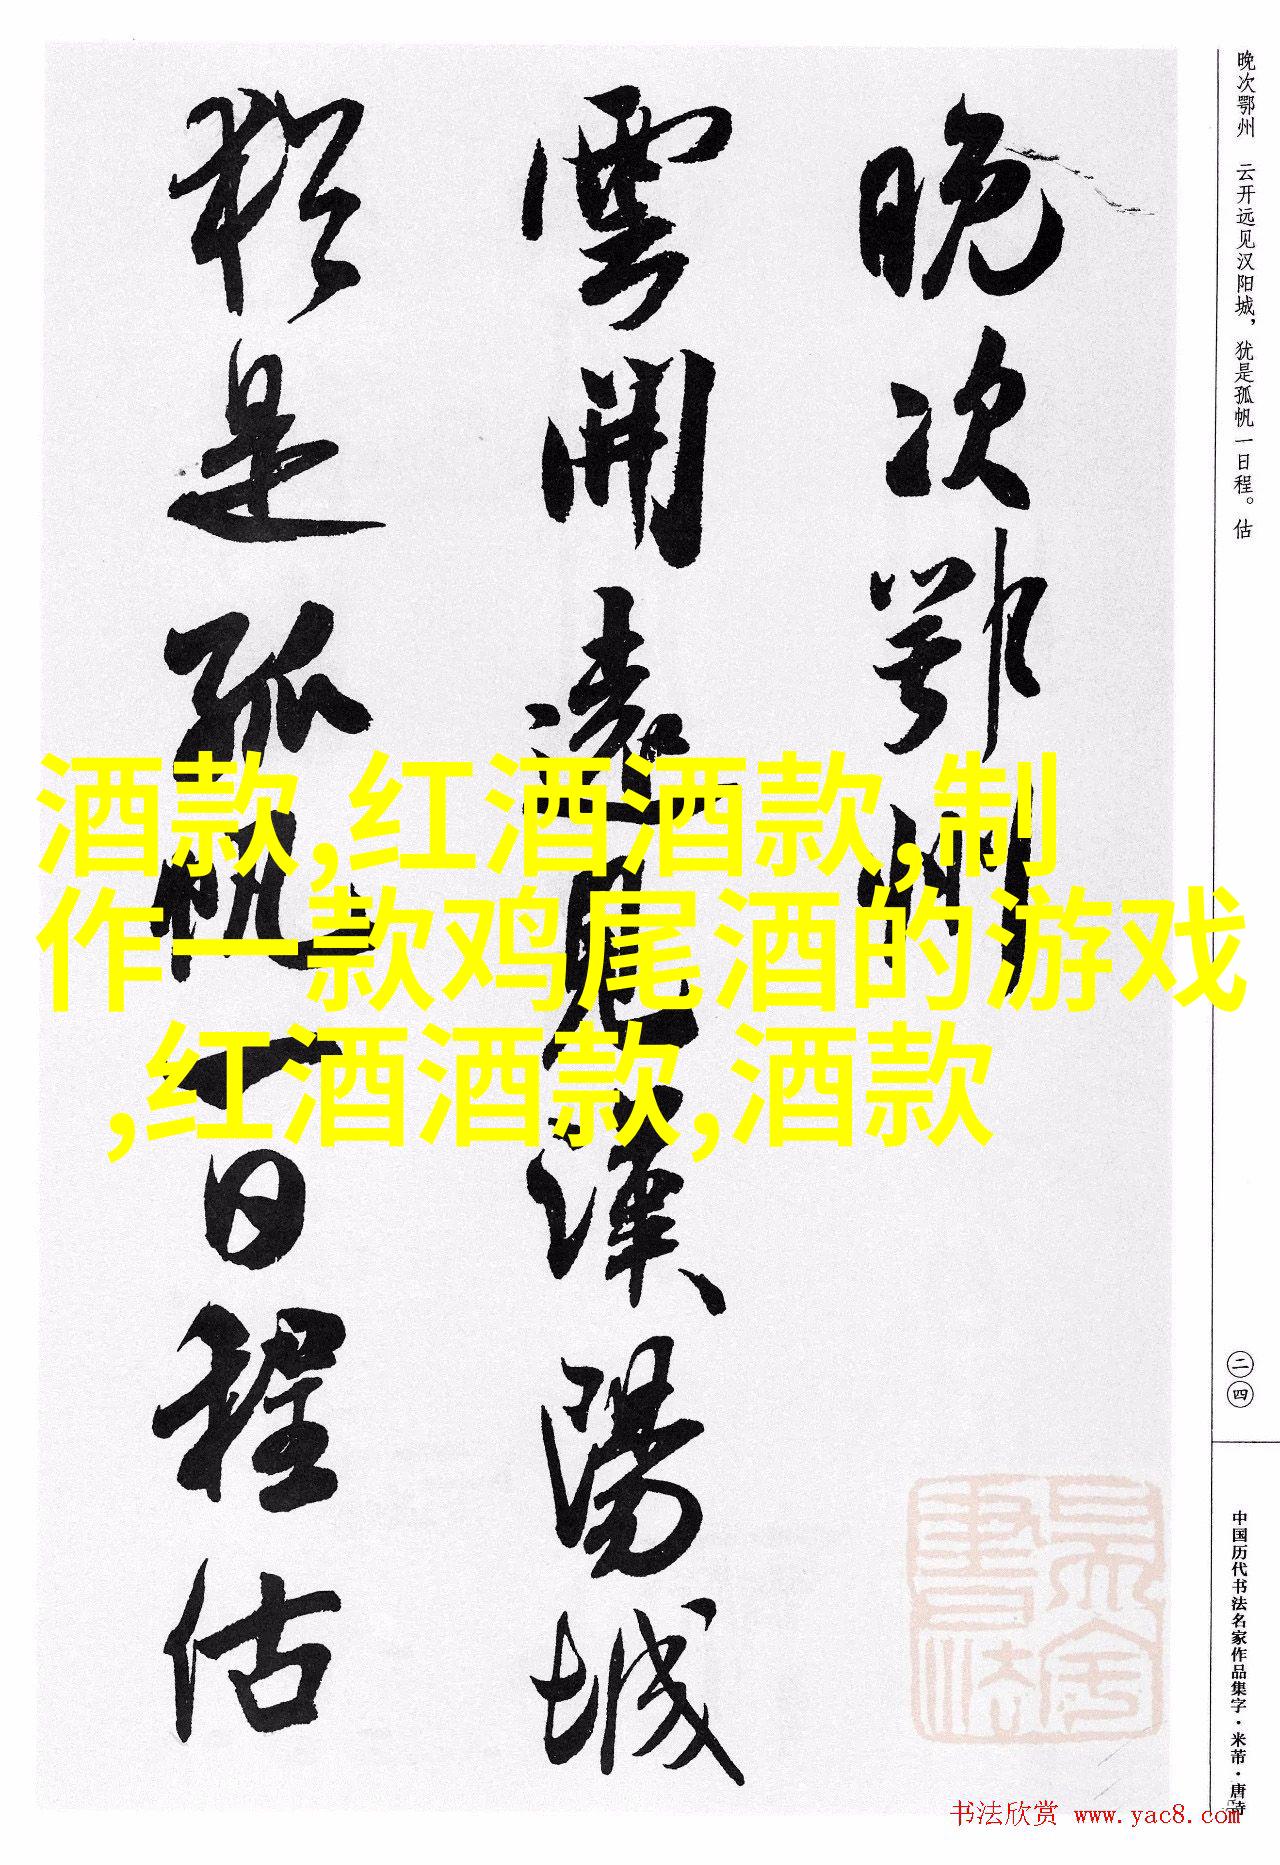 晚次鄂州
雲開遠見漢陽城
猶是孤帆一日程估
酒款,红酒酒款,制
作一款鸡尾酒的游戏
,红酒酒款,酒款
晚次鄂州 云开远见汉阳城，犹是孤帆一日程。估
二四
中国历代书法名家作品集字·米芾·唐诗
书法欣赏 www.yac8.com